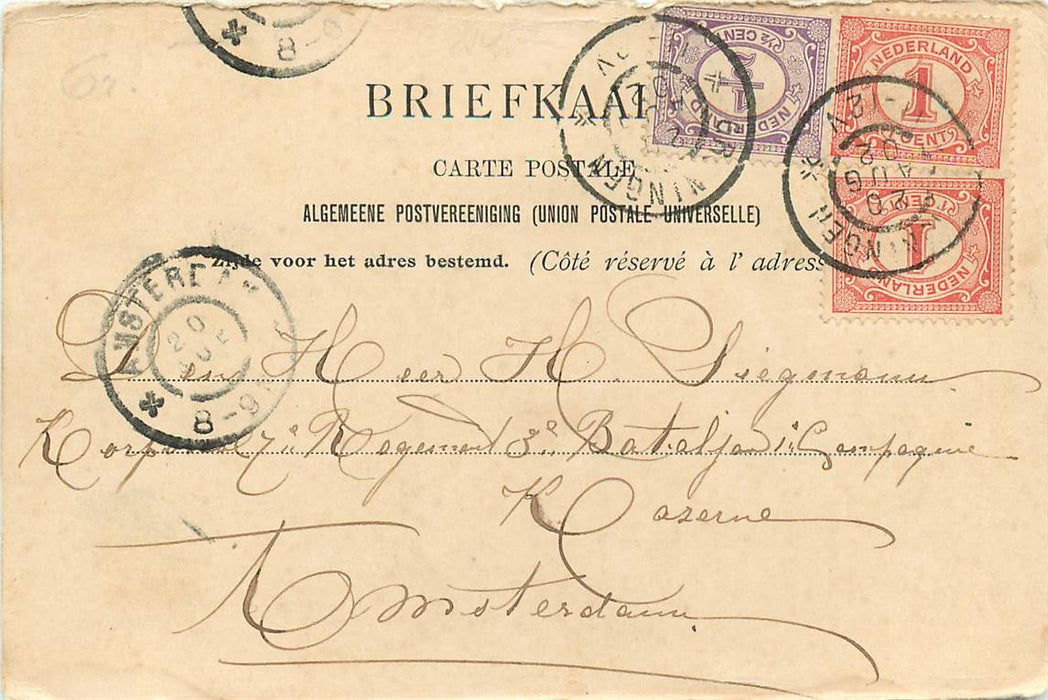 8-9
BRIEFKAA
CARTE POSTALE
ALGEMEENE POSTVEREENIGING (UNION POSTALE UNIVERSELLE)
Zijde voor het adres bestemd. (Côté réservé à l' adress
½ CENT
NEDERLAND
1
CENT
1
NEDERLAND
NINGEN
NINGEN
-12V
20
AUG
02
AMSTERDAM
20
AUG
8-9
Den Heer H. Siegmann
Korporaal 7e Regement 3e Bataljon 1e Compagnie
Kazerne
Amsterdam